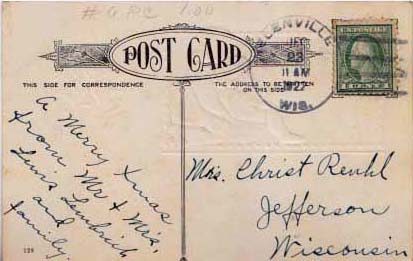 # 6 PC 1.00
POST CARD
THIS SIDE FOR CORRESPONDENCE
THE ADDRESS TO BE WRITTEN
ON THIS SIDE
GLENVILLE
DEC
23
11 AM
1922
WIS.
A Merry Xmas
from Mr & Mrs.
Lewis
and
family.
Mrs. Christ
Jefferson
Wisconsin
129